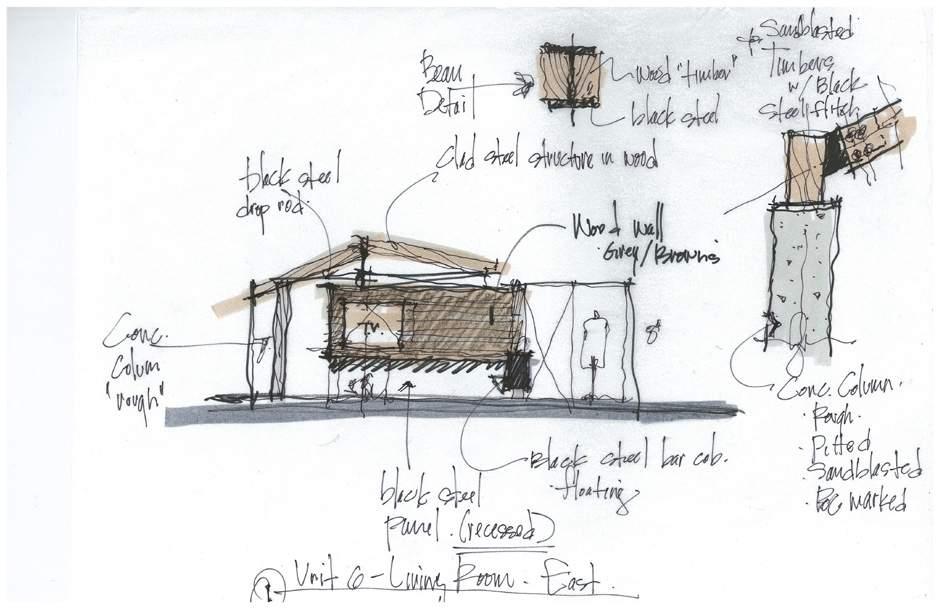 Beam
Detail
Wood "timber"
black steel
Sandblasted
Timbers
w/ Black
Steel flitch
clad steel structure in wood
black steel
drop rod.
Wood Wall
Grey/Browns
T.V.
Conc.
Column
"rough"
8'
Conc. Column.
· Rough.
· Pitted
· Sandblasted
· Poc marked
Black steel bar cab.
· floating
black steel
panel. (recessed)
1 Unit 6 - Living Room. East.